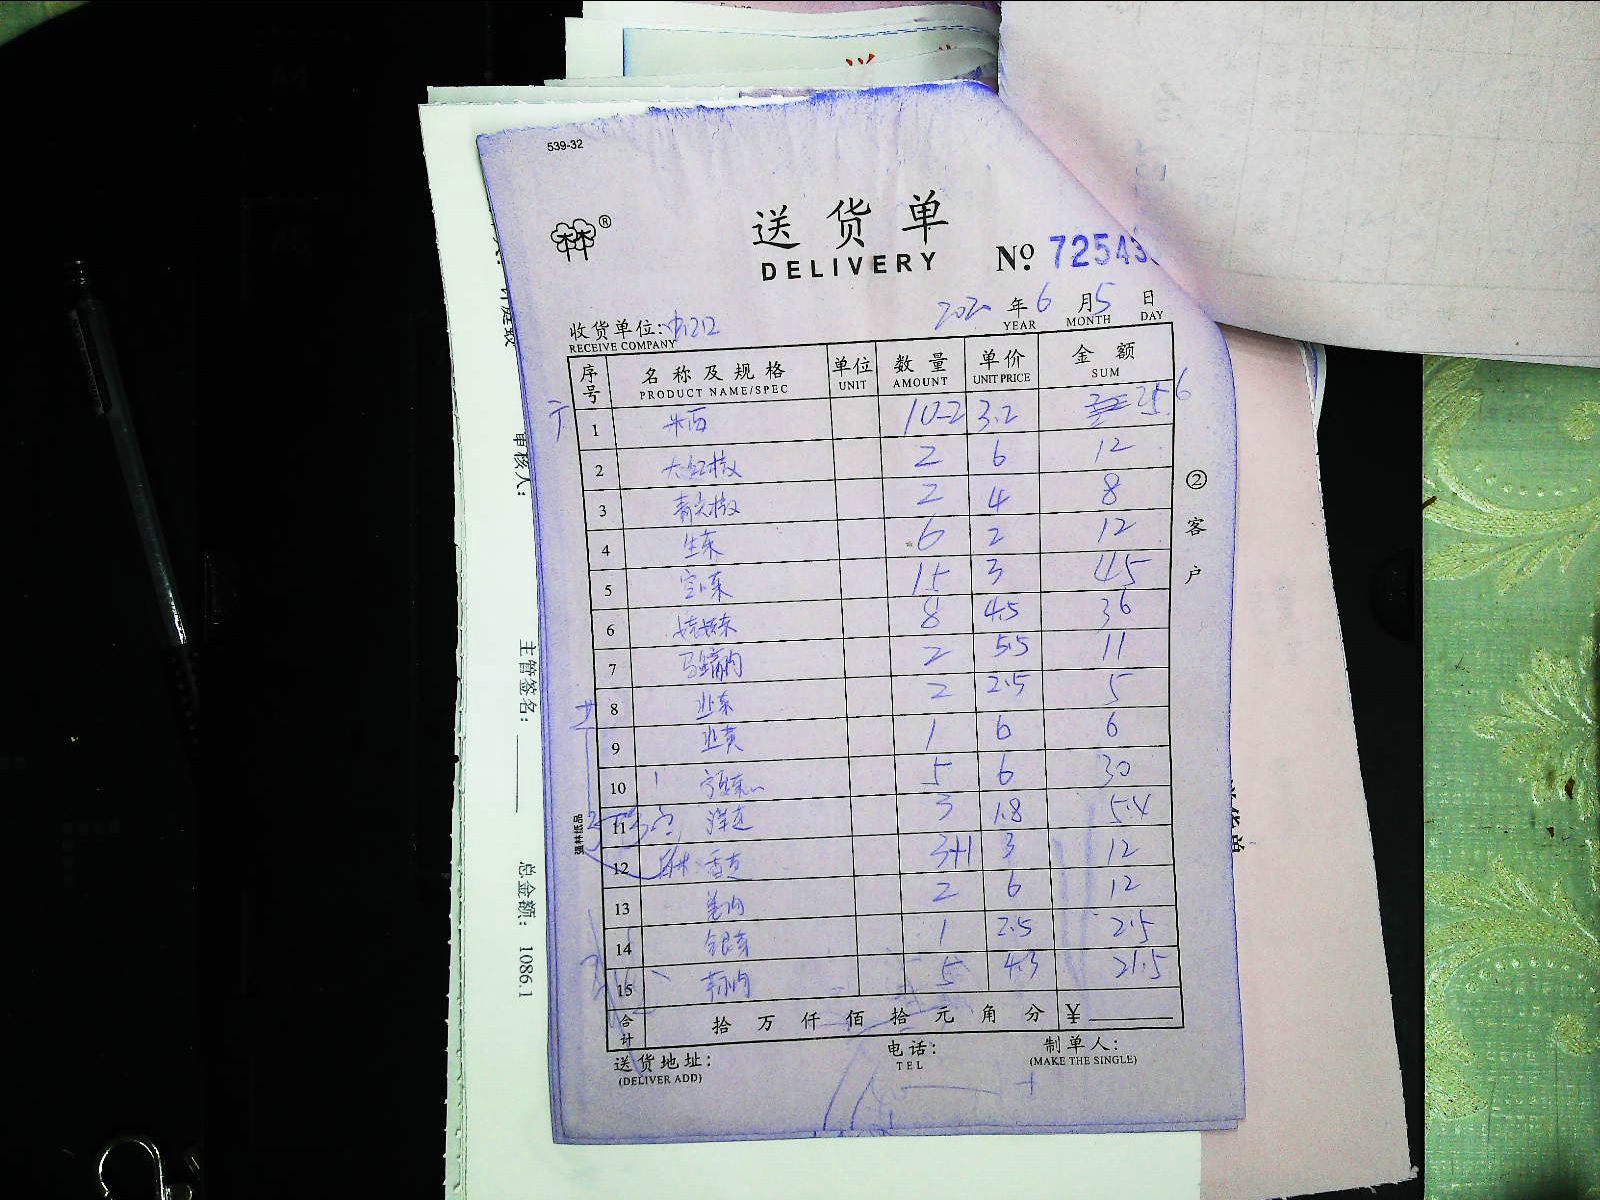 539-32
送货单
DELIVERY
№ 72543
2020 年 6 月 5 日
YEAR MONTH DAY
收货单位:
RECEIVE COMPANY
序号 名称及规格 单位 数量 单价 金额
PRODUCT NAME/SPEC UNIT AMOUNT UNIT PRICE SUM
1 10-2 3.2 25.6
2 大红椒 2 6 12
3 青尖椒 2 4 8
4 生菜 6 2 12
5 15 3 45
6 娃娃菜 8 4.5 36
7 2 5.5 11
8 韭菜 2 2.5 5
9 韭黄 1 6 6
10 5 6 30
11 洋芋 3 1.8 5.4
12 3+1 3 12
13 2 6 12
14 银芽 1 2.5 2.5
15 5 4.3 21.5
合计 拾 万 仟 佰 拾 元 角 分 ¥
送货地址:
(DELIVER ADD)
电话:
TEL
制单人:
(MAKE THE SINGLE)
②客户
强林纸品
审核人:
主管签名:
总金额: 1086.1